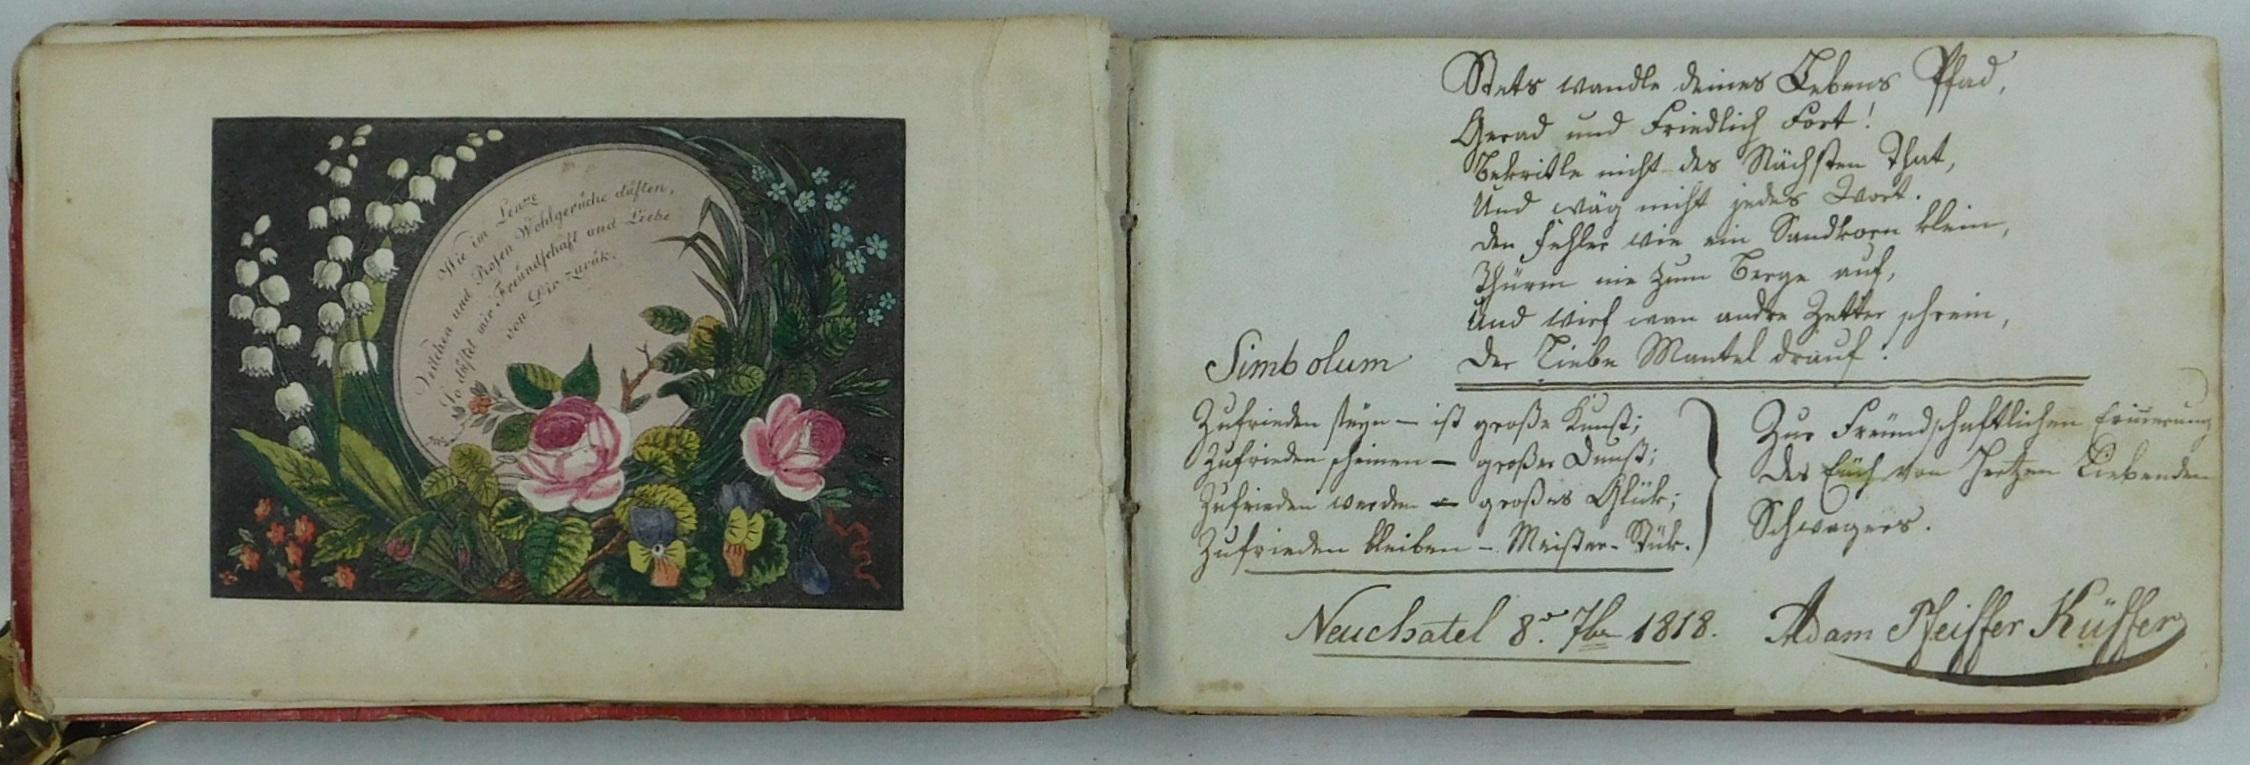 Wie im Lenze
Veilchen und Rosen Wohlgerüche düften,
So düftet mir Freündschaft und Liebe
von Dir zurük.
Stets wandle deines Lebens Pfad,
Gerad und Friedlich Fort!
Bekritle nicht des Nächsten That,
Und wäg nicht jedes Wort.
Den Fehler wie ein Sandkorn klein,
Thürm nie zum Berge auf,
Und wirf wan andre Zetter schrein,
Der Liebe Mantel drauf!
Simbolum
Zufrieden seÿn – ist große Kunst;
Zufrieden scheinen – großer Dunst;
Zufrieden werden – großes Glük;
Zufrieden bleiben – Meister-Stük.
Zur Freündschaftlichen Erinnerung
des Eüch von Hertzen Liebenden
Schwagers.
Neuchatel 8.r 7br 1818.
Adam Pfeiffer Küffer